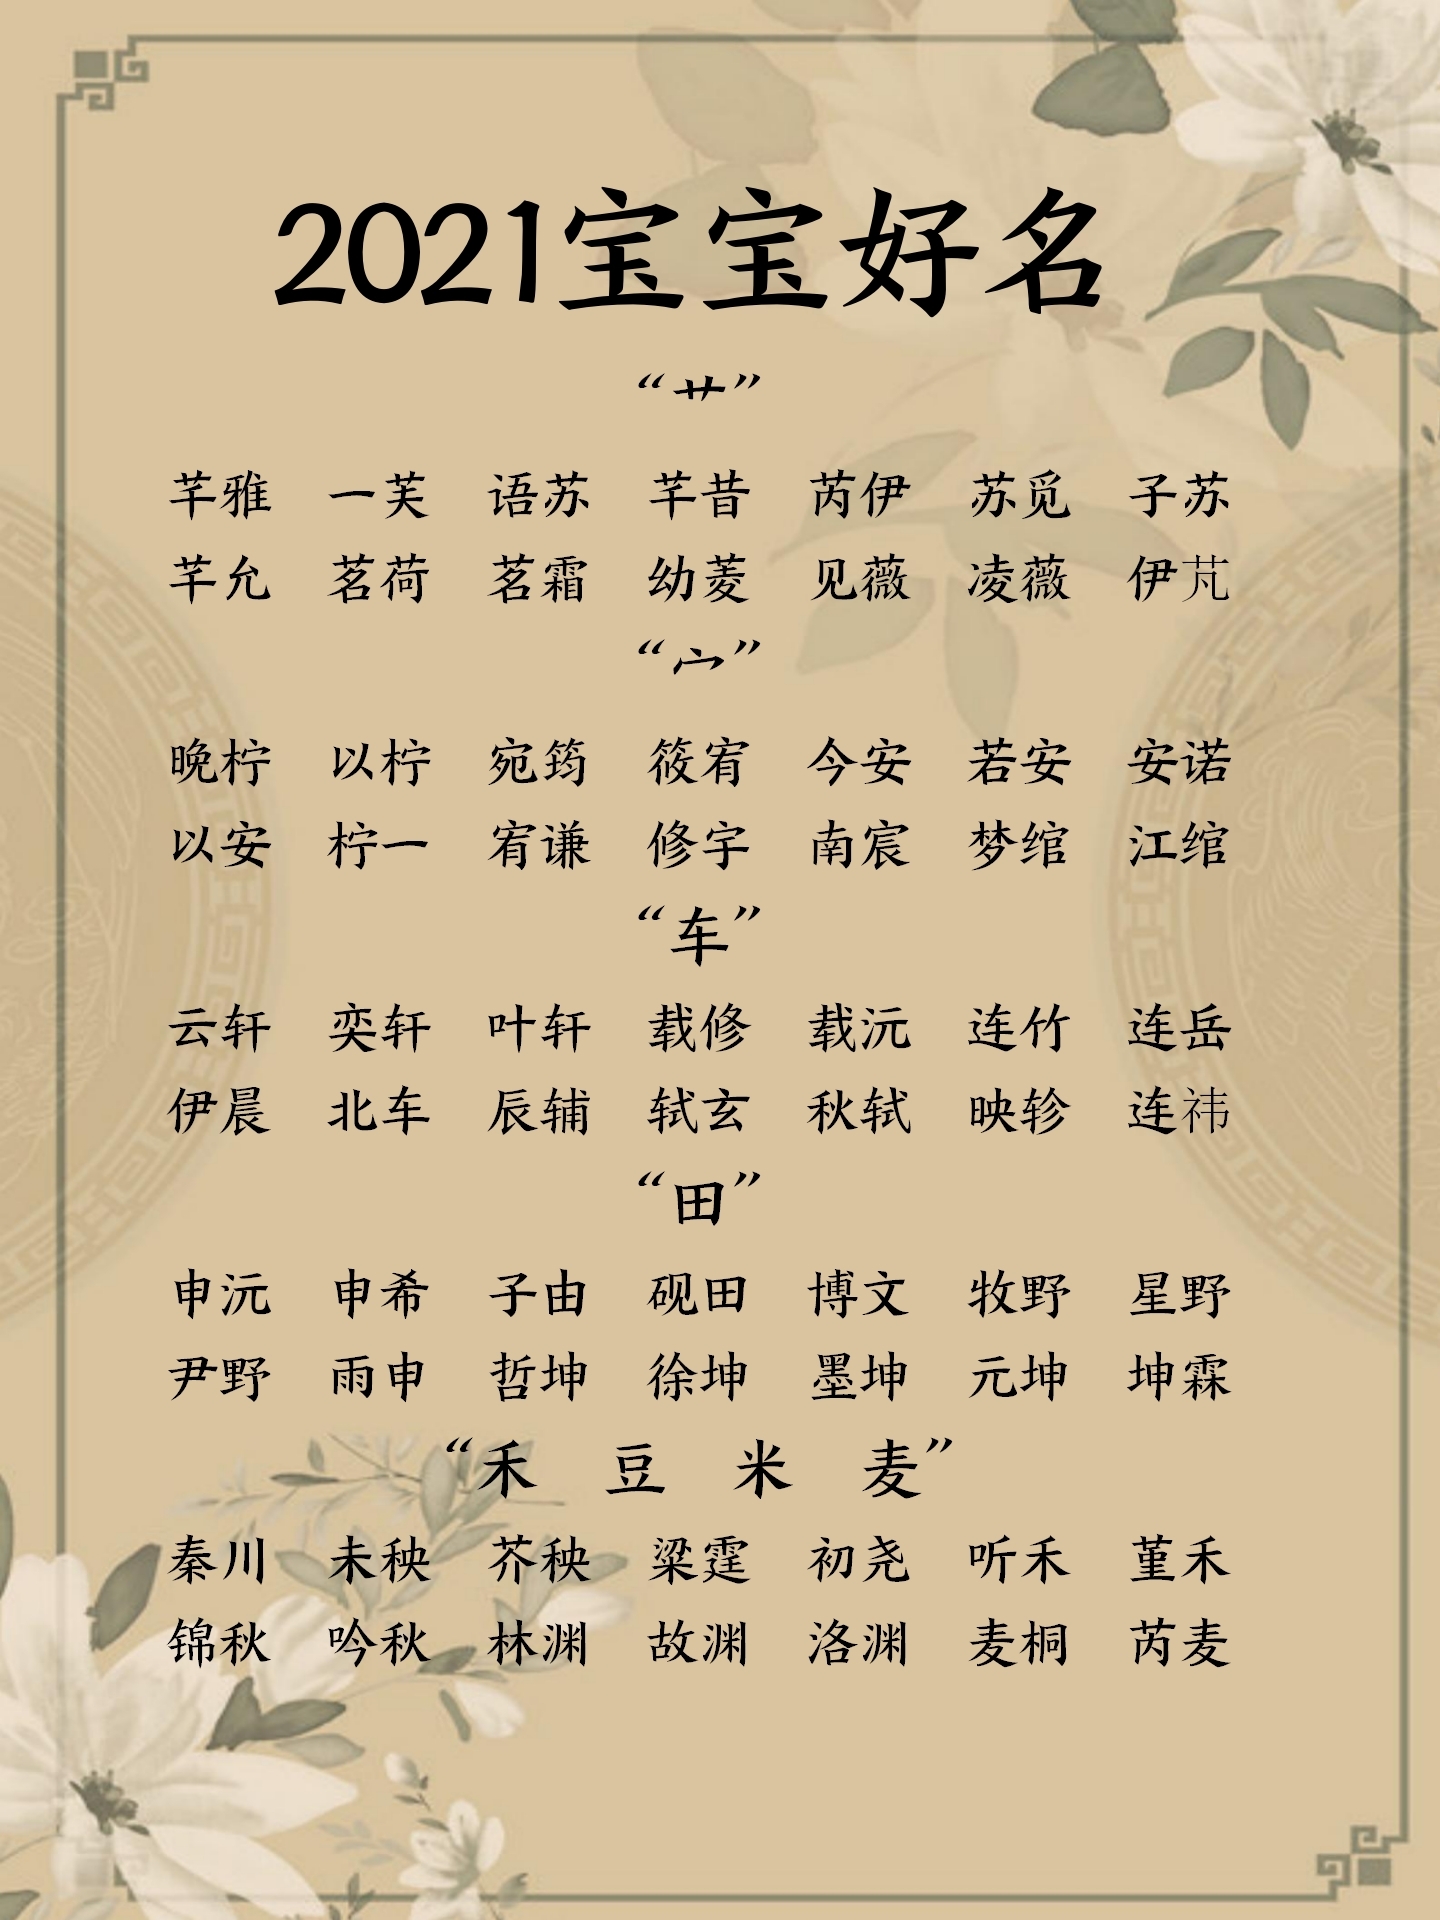 2021宝宝好名
“艹”
芊雅 一芙 语苏 芊昔 芮伊 苏觅 子苏
芊允 茗荷 茗霜 幼菱 见薇 凌薇 伊芃
“宀”
晚柠 以柠 宛筠 筱宥 今安 若安 安诺
以安 柠一 宥谦 修宇 南宸 梦绾 江绾
“车”
云轩 奕轩 叶轩 载修 载沅 连竹 连岳
伊晨 北车 辰辅 轼玄 秋轼 映轸 连祎
“田”
申沅 申希 子由 砚田 博文 牧野 星野
尹野 雨申 哲坤 徐坤 墨坤 元坤 坤霖
“禾 豆 米 麦”
秦川 未秧 芥秧 粱霆 初尧 听禾 堇禾
锦秋 吟秋 林渊 故渊 洛渊 麦桐 芮麦